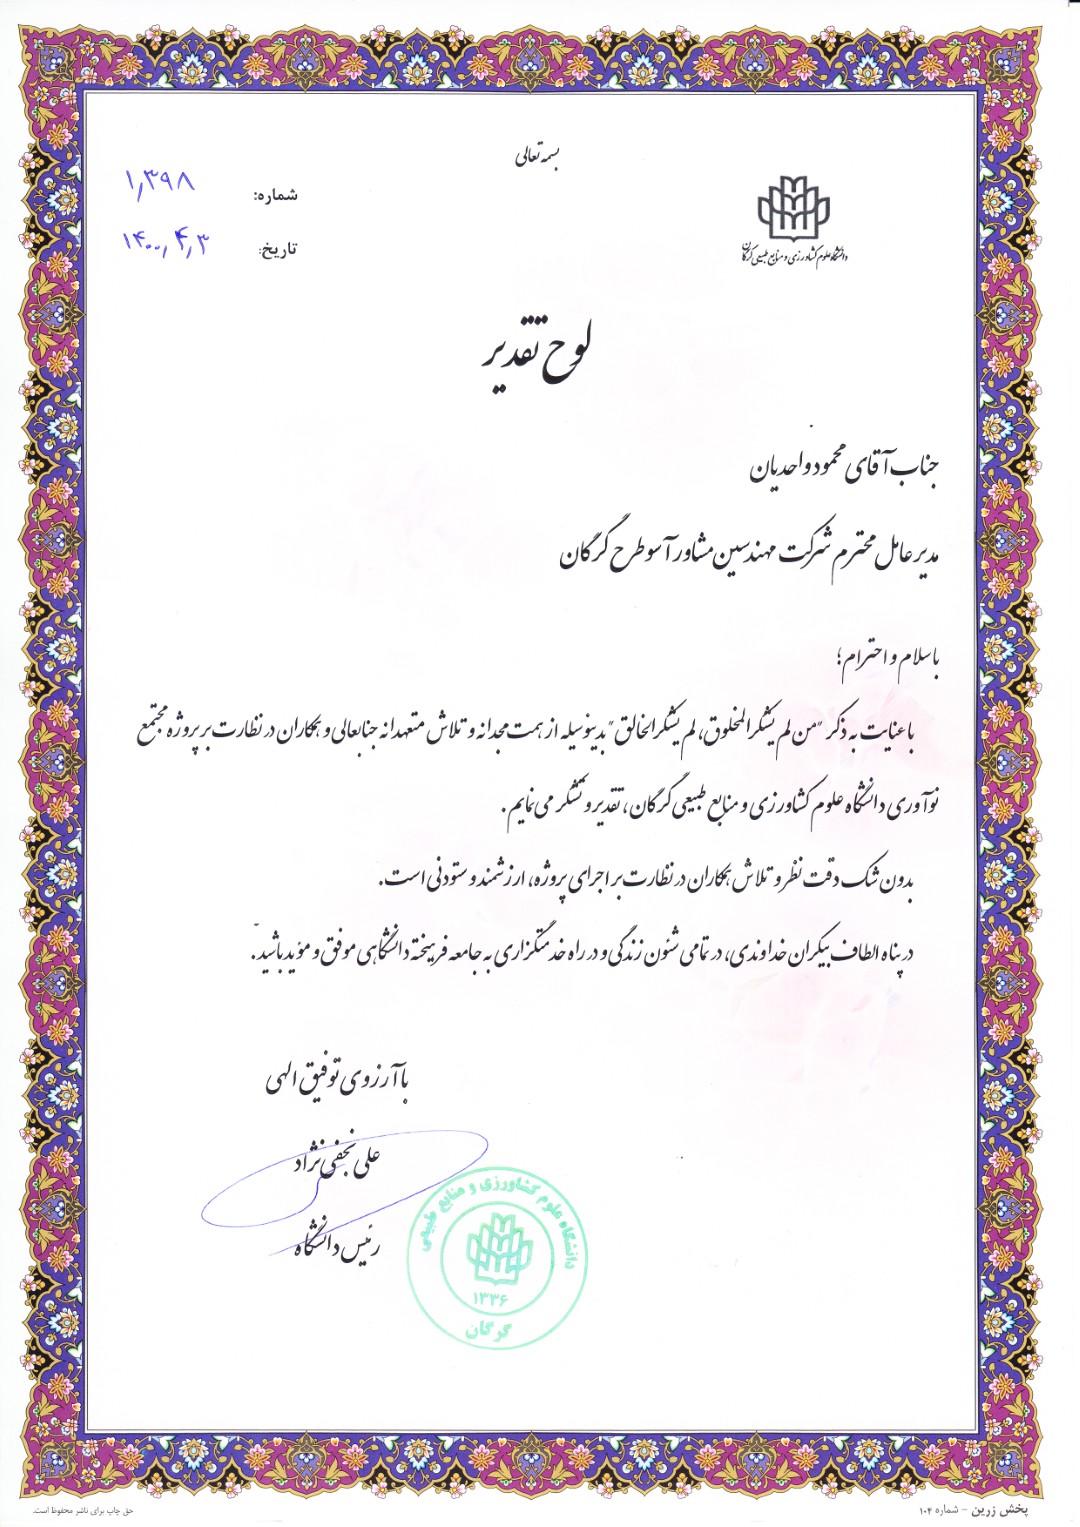 بسمه تعالی
شماره: ۱٫۳۹۸
تاریخ: ۱۴۰۰٫۴٫۳
دانشگاه علوم کشاورزی و منابع طبیعی گرگان
لوح تقدیر
جناب آقای محمود واحدیان
مدیر عامل محترم شرکت مهندسین مشاور آسو طرح گرگان
با سلام و احترام؛
با عنایت به ذکر "من لم یشکر المخلوق، لم یشکر الخالق" بدینوسیله از همت مجدانه و تلاش متعهدانه جنابعالی و همکاران در نظارت بر پروژه مجتمع
نوآوری دانشگاه علوم کشاورزی و منابع طبیعی گرگان، تقدیر و تشکر می نمایم.
بدون شک دقت نظر و تلاش همکاران در نظارت بر اجرای پروژه، ارزشمند و ستودنی است.
در پناه الطاف بیکران خداوندی، در تمامی شئون زندگی و در راه خدمتگزاری به جامعه فرهیخته دانشگاهی موفق و مؤید باشید.
با آرزوی توفیق الهی
علی نجفی نژاد
رئیس دانشگاه
دانشگاه علوم کشاورزی و منابع طبیعی
۱۳۳۶
گرگان
پخش زرین - شماره ۱۰۴
حق چاپ برای ناشر محفوظ است.